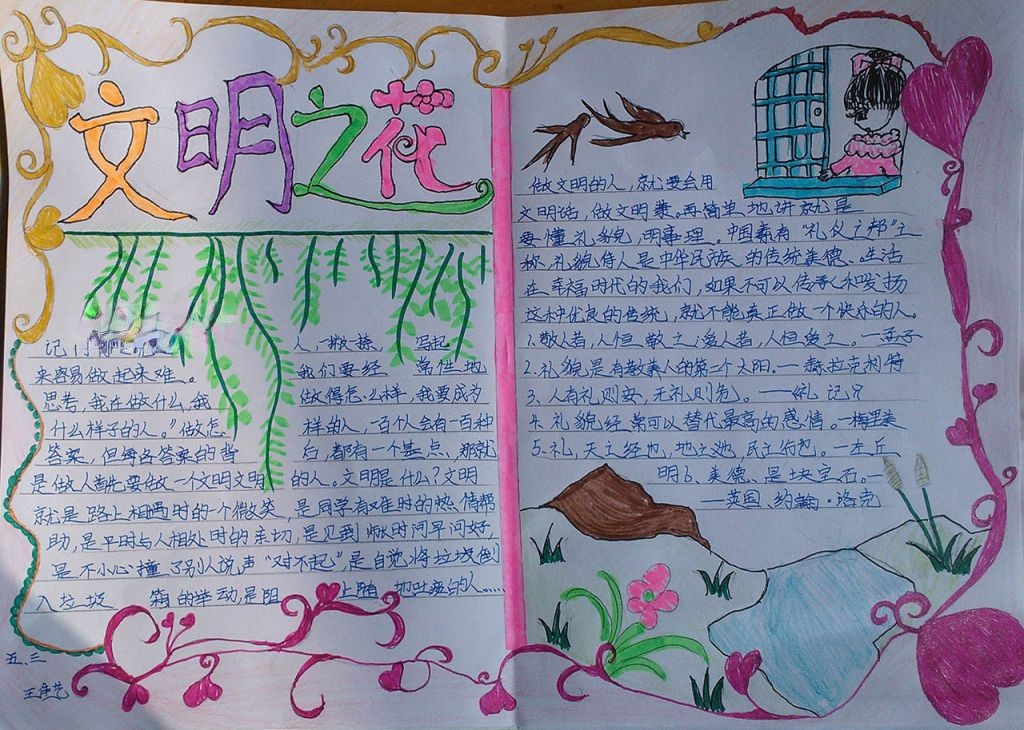 文明之花
人,一撇一捺 写起
来容易做起来难。 我们要经 常性地
思考,我在做什么,我 做得怎么样,我要成为
什么样子的人。"做怎 样的人,一百个人会有一百种
答案,但每各答案的背 后,都有一个基点,那就
是做人首先要做一个文明文明 的人。文明是什么?文明
就是路上相遇时的一个微笑,是同学有难时的热情帮
助,是平时与人相处时的亲切,是见到师长时问早问好,
是不小心撞了别人说声"对不起",是自觉将垃圾倒
入垃圾 箱的举动,是阻 上随 地吐痰的人……
五、三
做文明的人,就要会用
文明话,做文明豪。再简单地讲就是
要懂礼貌,明事理。中国素有"礼仪之邦"之
称,礼貌侍人是中华民族的传统美德、生活
在幸福时代的我们,如果不可以传承和发扬
这种优良的传统,就不能真正做一个快乐的人。
1.敬人者,人恒敬士;爱人者,人恒爱士。—孟子
2.礼貌是有教养人的第二个太阳。—赫拉克利特
3、人有礼则安,无礼则危。——《礼记》
4.礼貌经常可以替代最高的感情。—梅里美
5.礼,天之经也,地之池,民之行也。—左丘
明6、美德、是块宝石。—
—英国、约翰·洛克